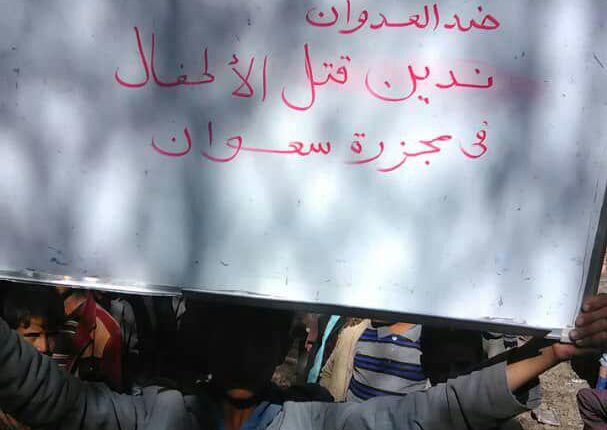 ضد العدوان
ندين قتل الأطفال
في مجزرة سعوان